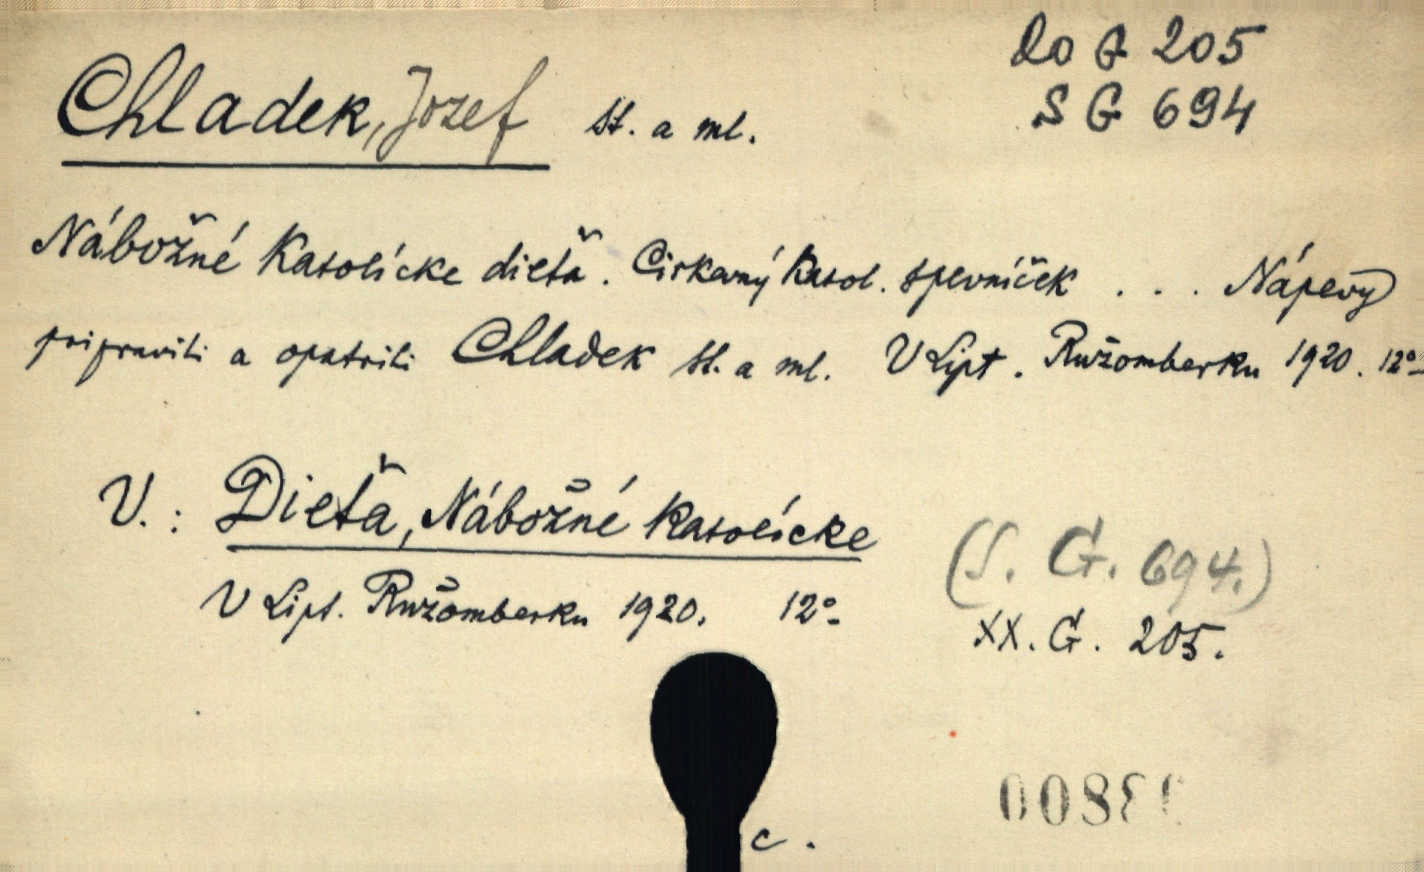 Do G 205
Chladek, Jozef st. a ml.
S G 694
Nábožné Katolícke dieťa. Cirkevný katol. spevníček . . . Nápevy
pripravili a opatrili Chladek st. a ml. V Lipt. Ružomberku 1920. 12°
V. : Dieťa, Nábožné katolícke
(S. G. 694.)
V Lipt. Ružomberku 1920. 12°.
XX. G. 205.
c.